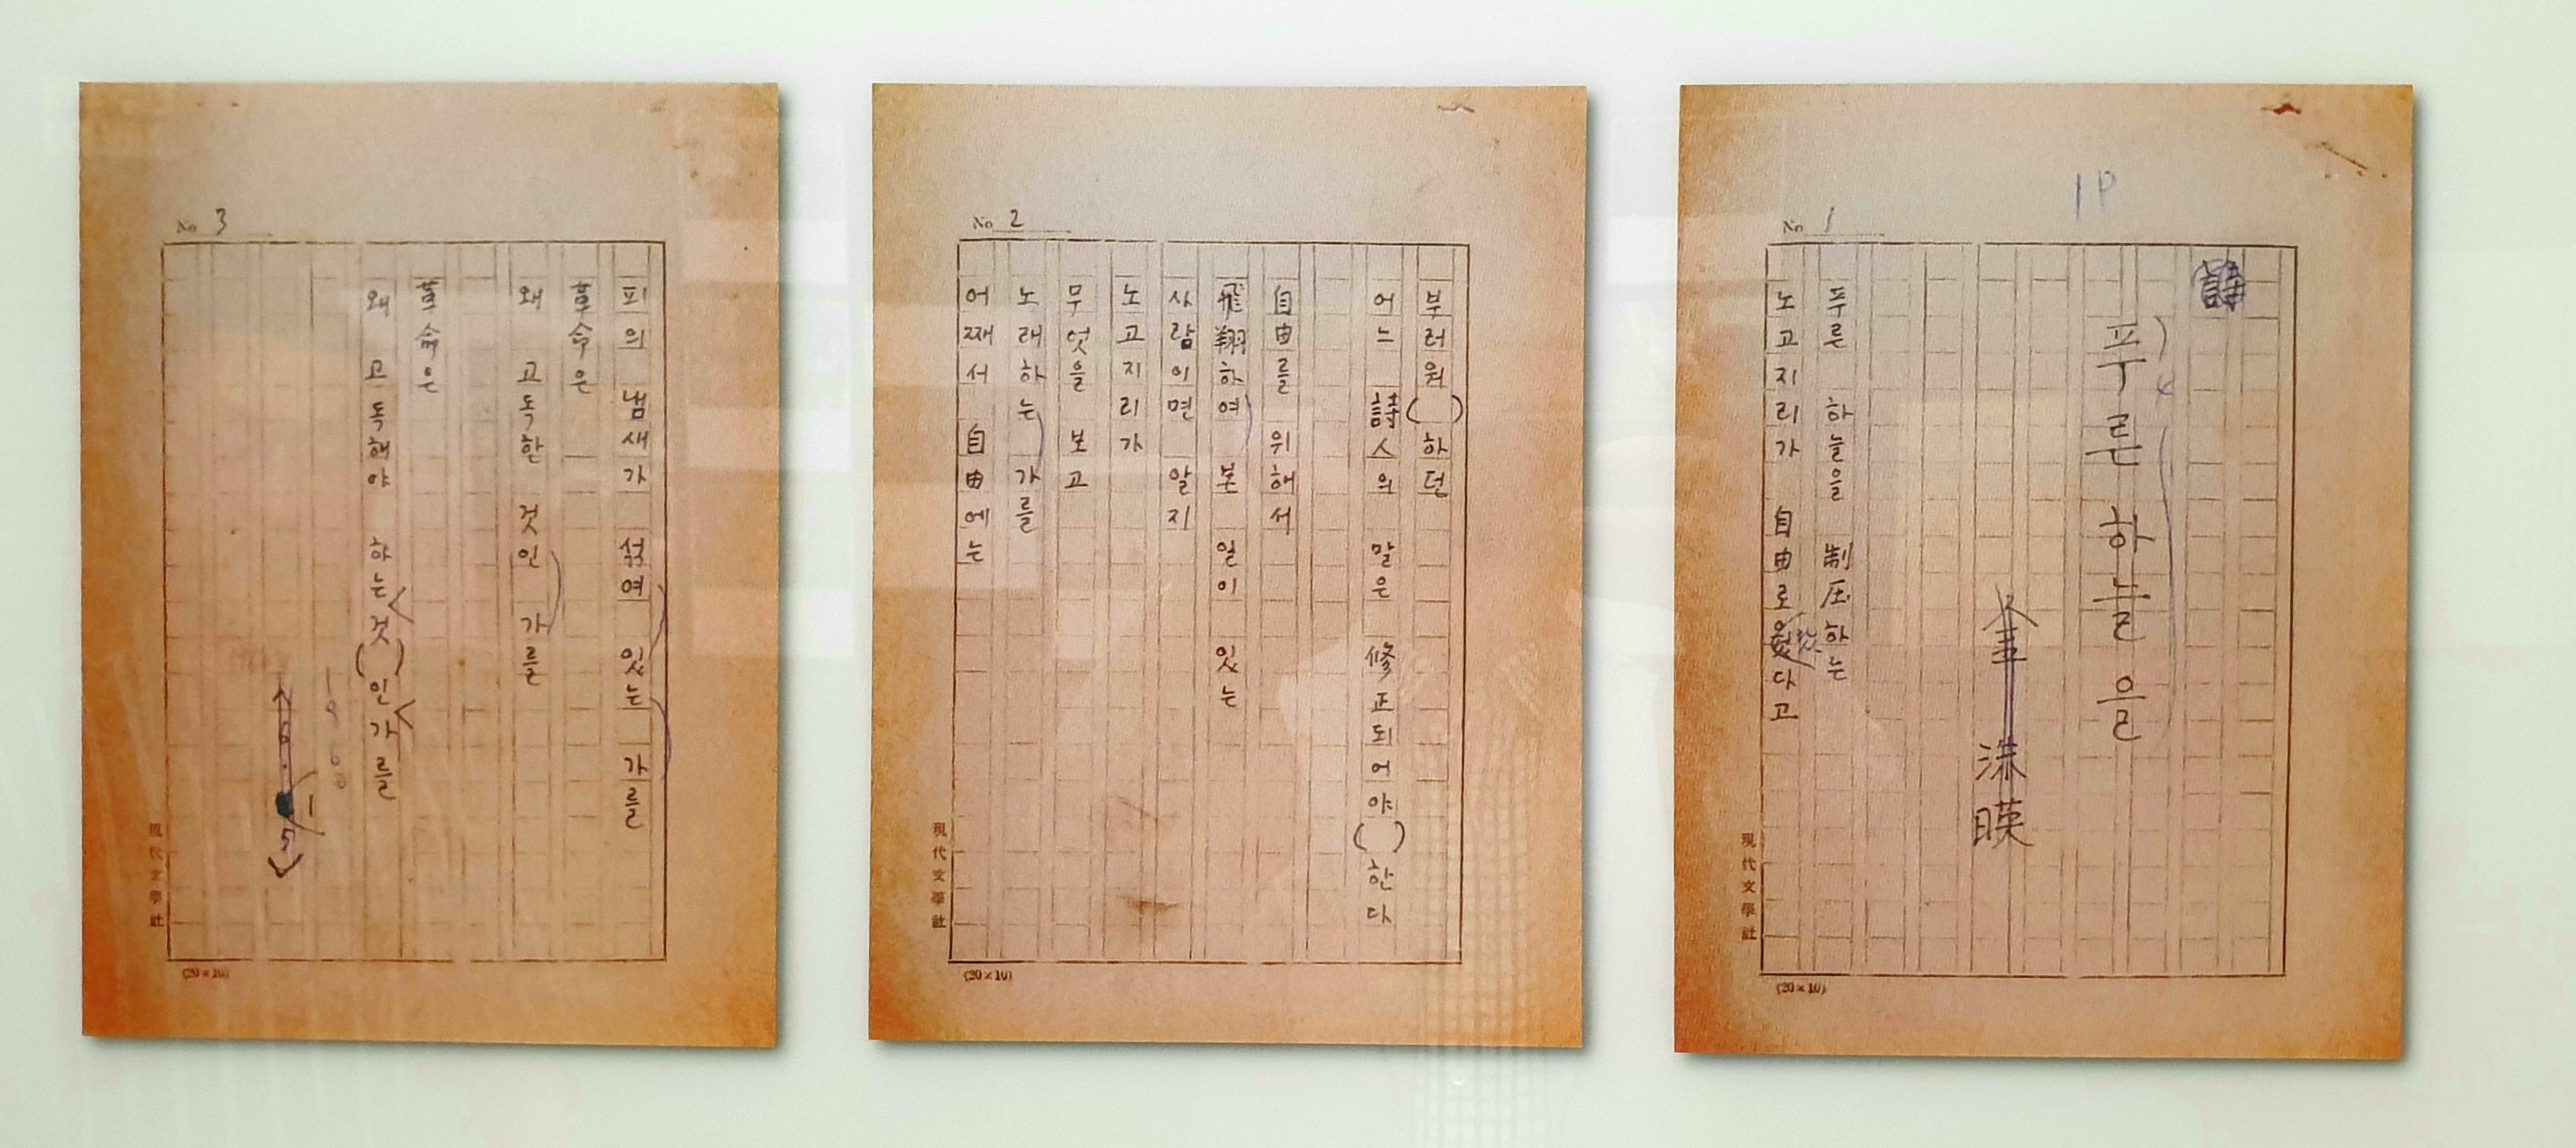 1P
No 1
詩
푸른 하늘을
金洙暎
푸른 하늘을 制圧하는
노고지리가 自由로웠다고
現代文學社
(20×10)
No 2
부러워하던
어느 詩人의 말은 修正되어야 한다
自由를 위해서
飛翔하여 본 일이 있는
사람이면 알지
노고지리가
무엇을 보고
노래하는 가를
어째서 自由에는
現代文學社
(20×10)
No 3
피의 냄새가 섞여 있는 가를
革命은
왜 고독한 것인 가를
革命은
왜 고독해야 하는 것인가를
1960
6.15
現代文學社
(20×10)